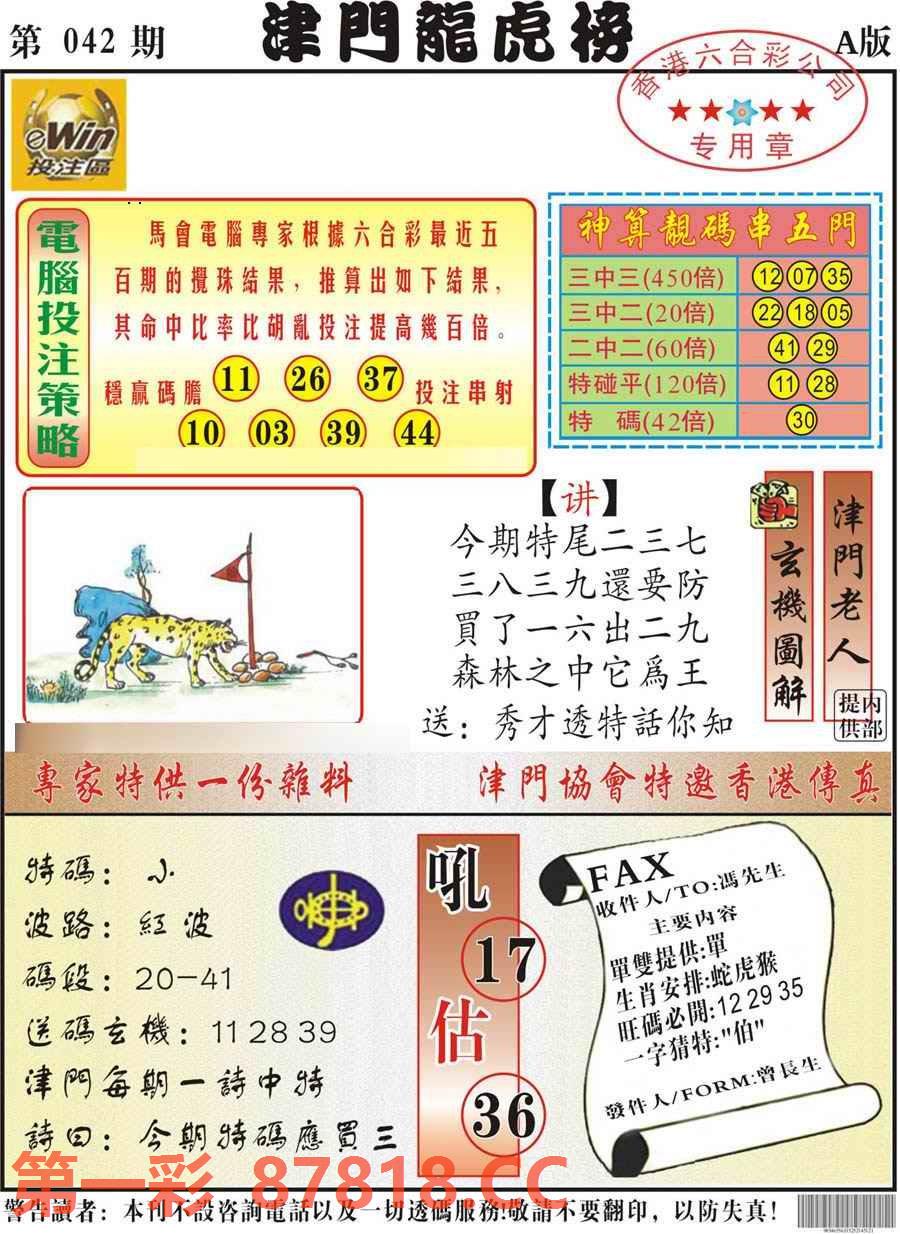 第 042 期
津門龍虎榜
A版
香港六合彩公司
专用章
eWin
投注區
電腦投注策略
馬會電腦專家根據六合彩最近五
百期的攪珠結果，推算出如下結果，
其命中比率比胡亂投注提高幾百倍。
穩贏碼膽 11 26 37 投注串射
10 03 39 44
神算靚碼串五門
三中三(450倍) 12 07 35
三中二(20倍) 22 18 05
二中二(60倍) 41 29
特碰平(120倍) 11 28
特 碼(42倍) 30
【讲】
今期特尾二三七
三八三九還要防
買了一六出二九
森林之中它爲王
送：秀才透特話你知
玄機圖解
津門老人
内部提供
專家特供一份雜料
津門協會特邀香港傳真
特碼：小
波路：紅波
碼段：20-41
送碼玄機：11 28 39
津門每期一詩中特
詩曰：今期特碼應買三
吼
17
估
36
FAX
收件人/TO:馮先生
主要内容
單雙提供:單
生肖安排:蛇虎猴
旺碼必開:12 29 35
一字猜特:"伯"
發件人/FORM:曾長生
第一彩 87818.CC
警告讀者：本刊不設咨詢電話以及一切透碼服務!敬請不要翻印，以防失真!